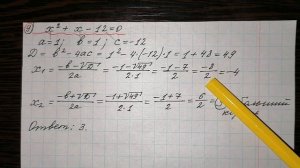 x² + x - 12 = 0
a = 1; b = 1; c = -12
D = b² - 4ac = 1² - 4·(-12)·1 = 1 + 48 = 49
x₁ = (-b - √D)/2a = (-1 - √49)/(2·1) = (-1 - 7)/2 = -8/2 = -4
x₂ = (-b + √D)/2a = (-1 + √49)/(2·1) = (-1 + 7)/2 = 6/2 =
Ответ: 3.